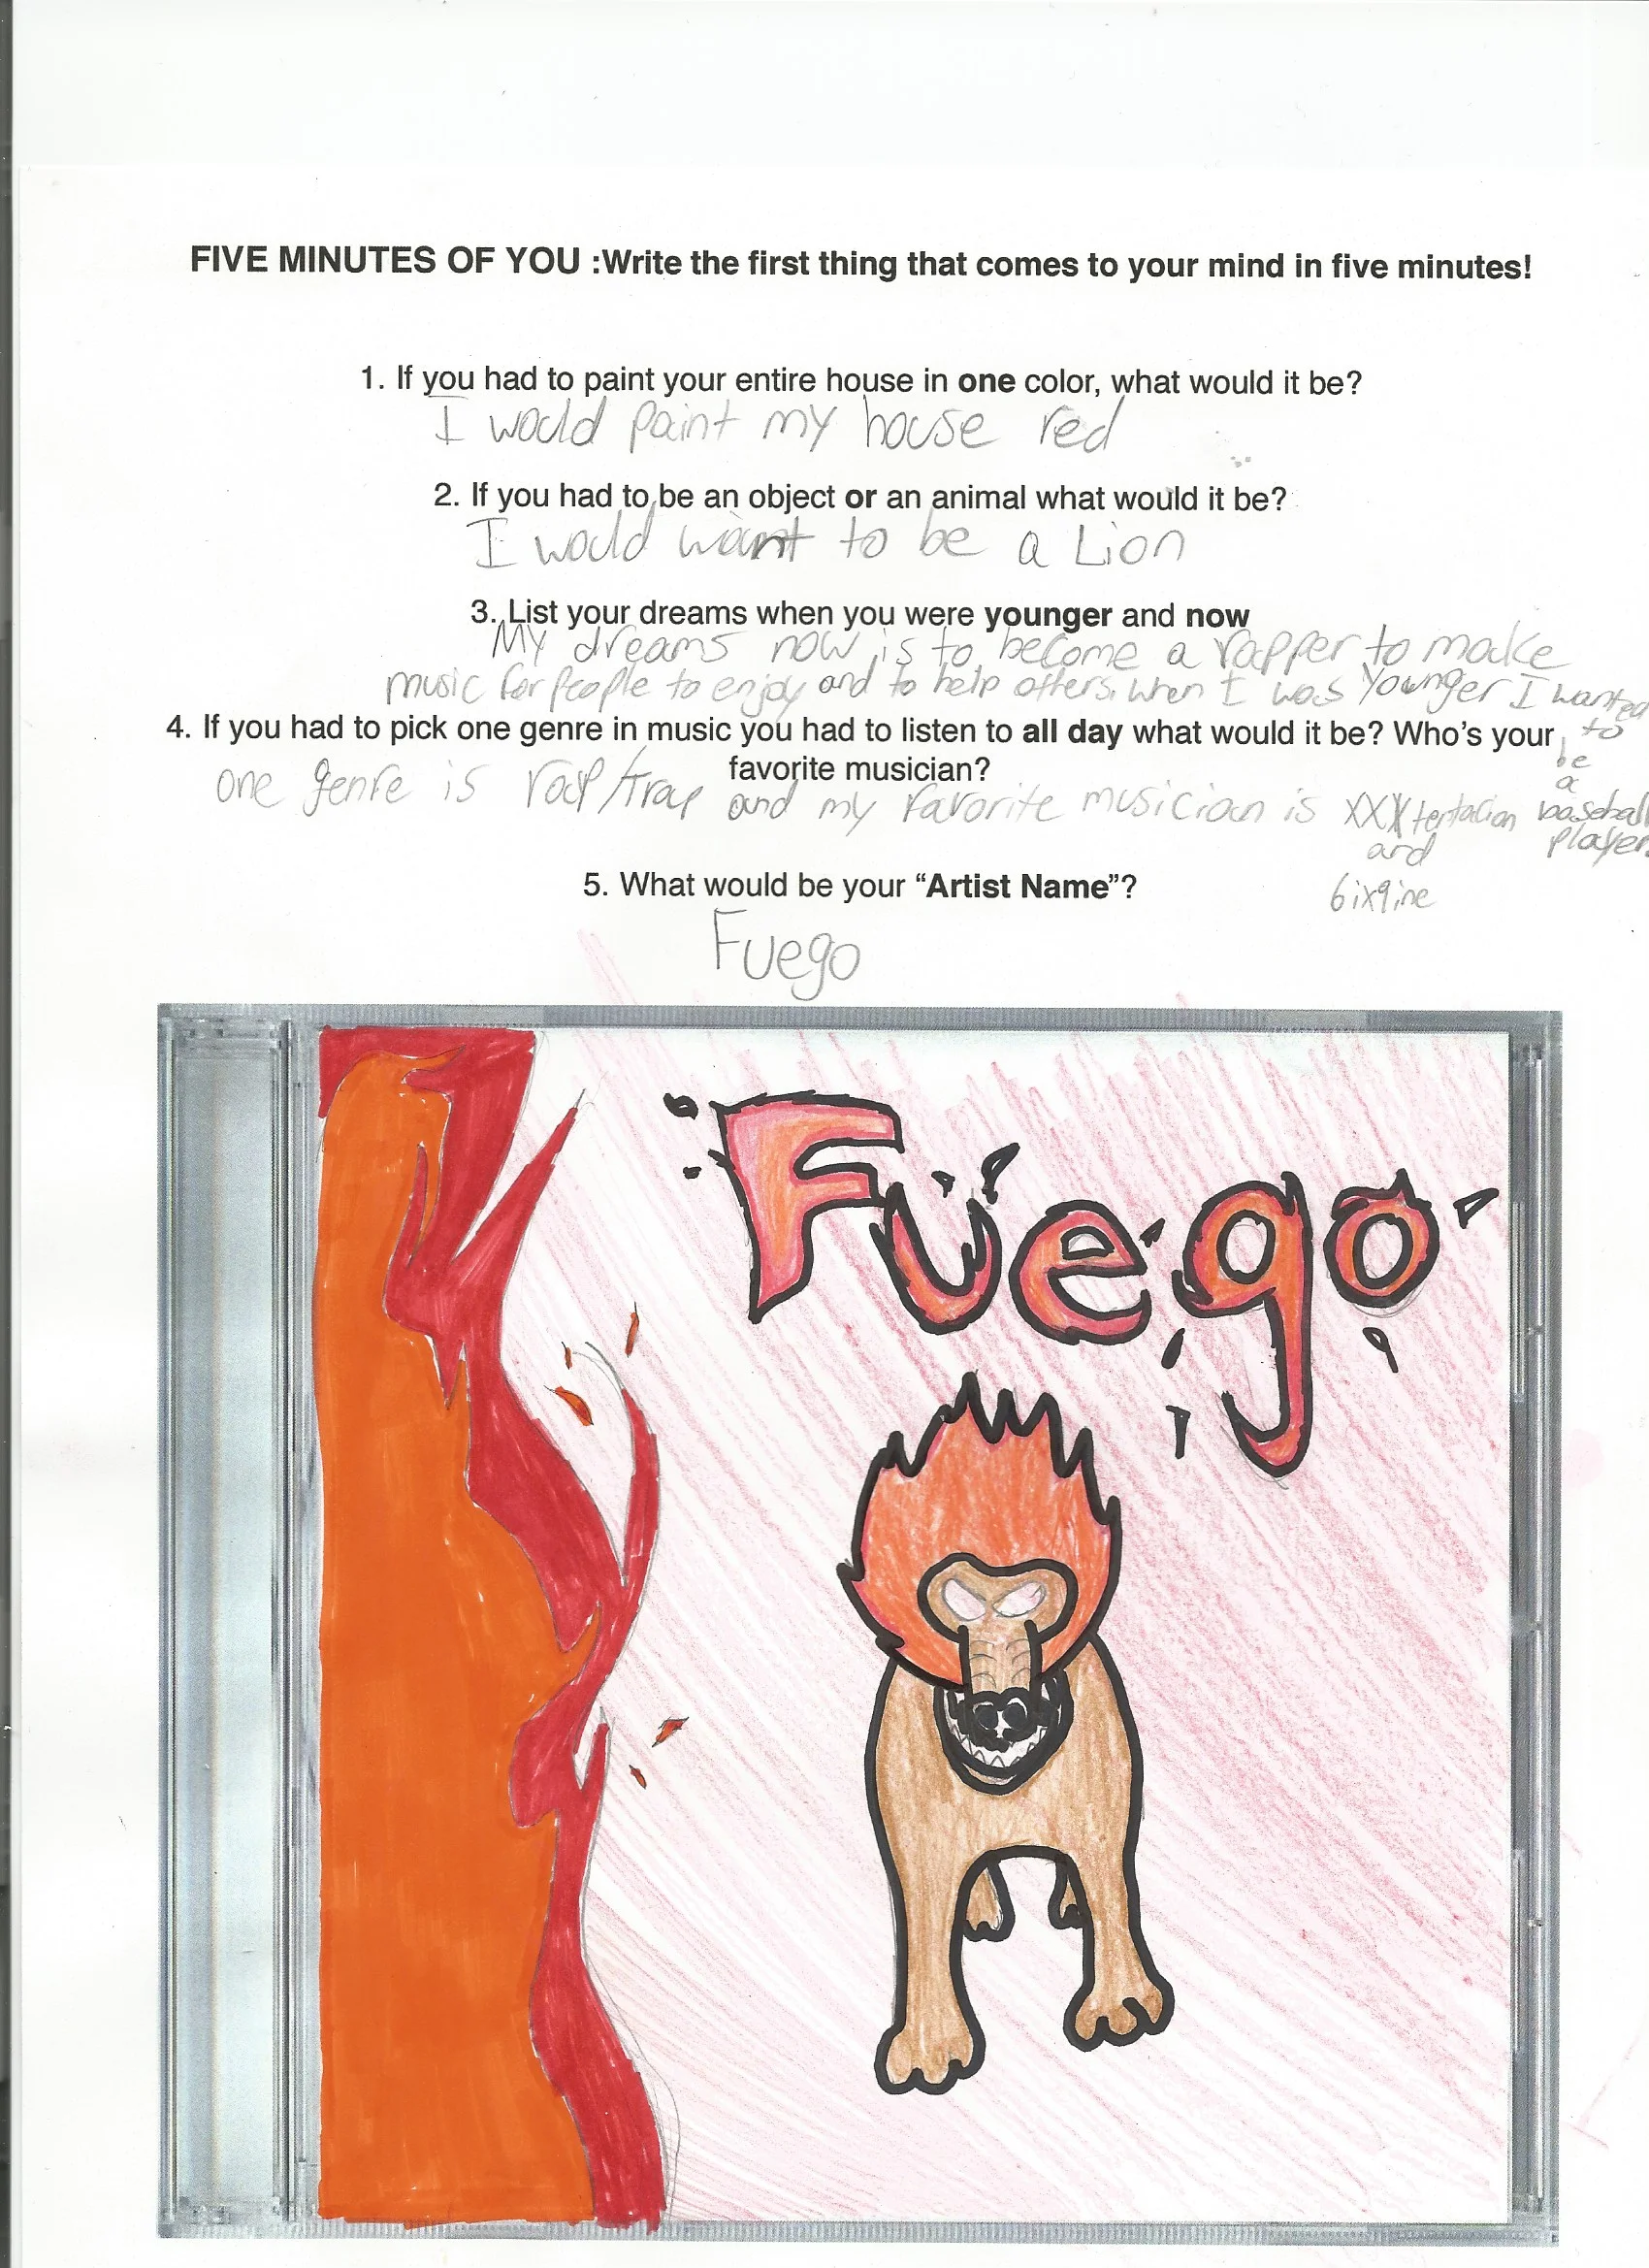 FIVE MINUTES OF YOU :Write the first thing that comes to your mind in five minutes!
1. If you had to paint your entire house in one color, what would it be?
I would paint my house red
2. If you had to be an object or an animal what would it be?
I would want to be a Lion
3. List your dreams when you were younger and now
My dreams now is to become a rapper to make
music for people to enjoy and to help others. when I was younger I wanted
to
be
a
baseball
player.
4. If you had to pick one genre in music you had to listen to all day what would it be? Who's your
favorite musician?
one genre is rap/trap and my favorite musician is XXXtentacion
and
6ix9ine
5. What would be your “Artist Name”?
Fuego
Fuego